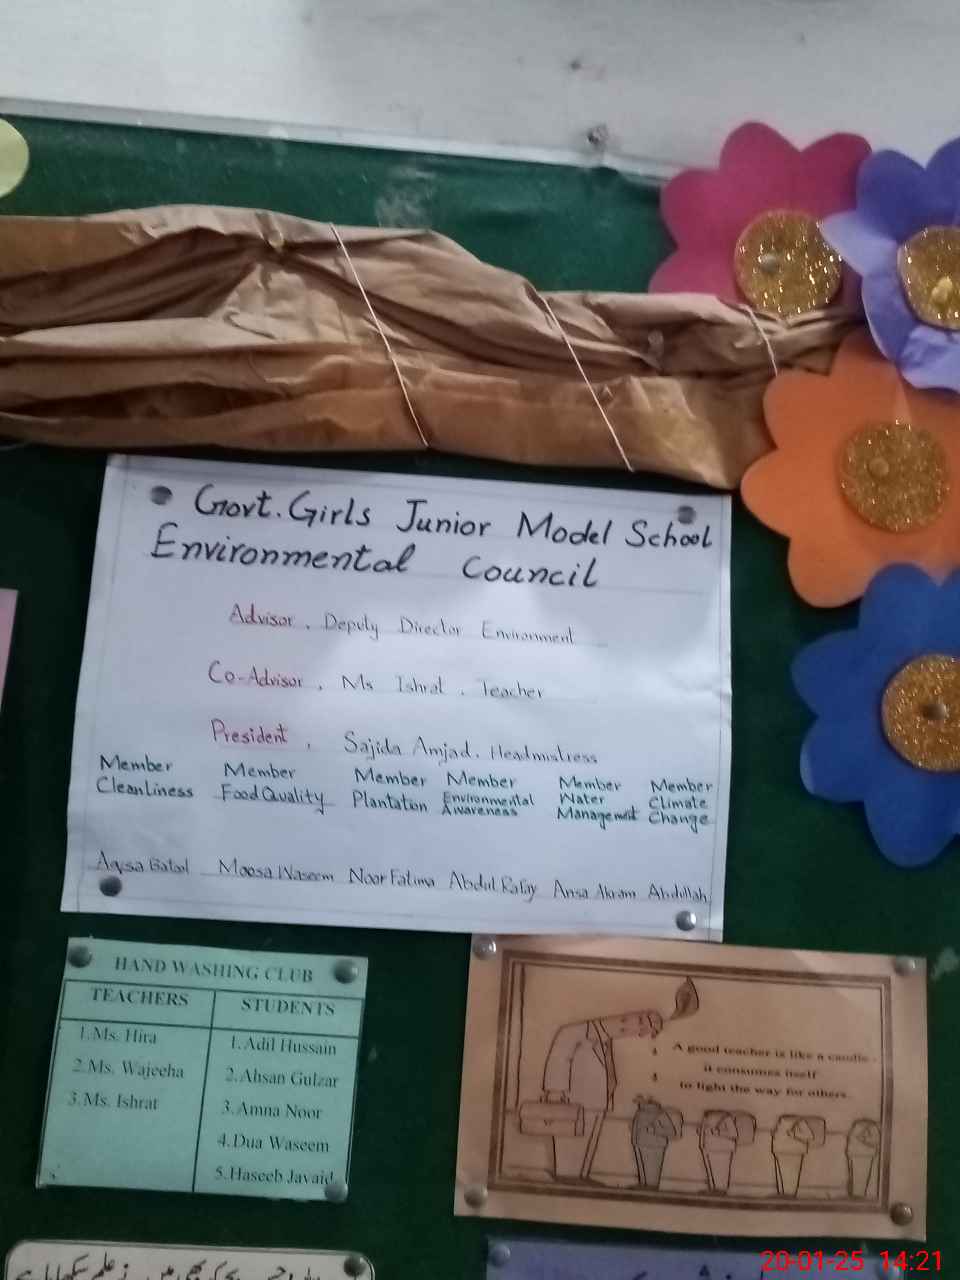 Govt. Girls Junior Model School
Environmental Council
Advisor, Deputy Director Environment
Co-Advisor, Ms Ishrat, Teacher
President, Sajida Amjad. Headmistress
Member Cleanliness
Member Food Quality
Member Plantation
Member Environmental Awareness
Member Water Management
Member Climate Change
Aqsa Batool Moosa Waseem Noor Fatima Abdul Rafay Ansa Akram Abdullah
HAND WASHING CLUB
TEACHERS STUDENTS
1.Ms. Hira
2.Ms. Wajeeha
3.Ms. Ishrat
1.Adil Hussain
2.Ahsan Gulzar
3.Amna Noor
4.Dua Waseem
5.Haseeb Javaid
A good teacher is like a candle -
it consumes itself
to light the way for others.
20-01-25 14:21